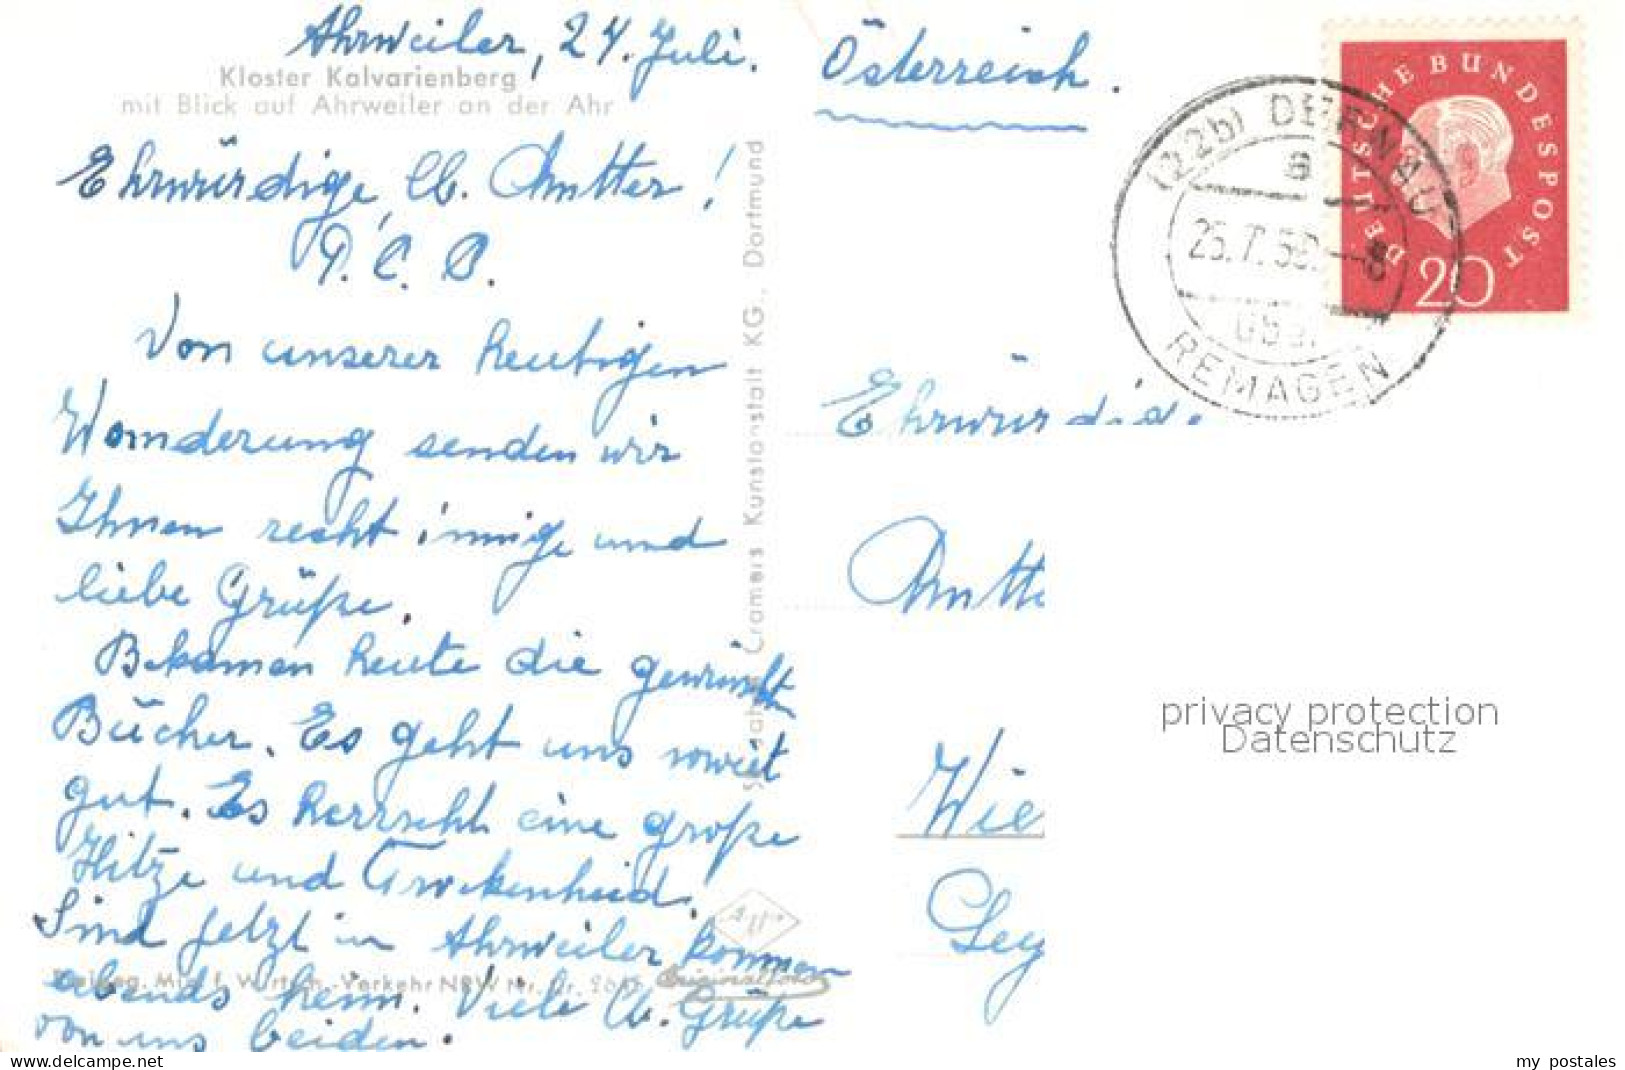 Ahrweiler, 24. Juli.
Kloster Kalvarienberg
mit Blick auf Ahrweiler an der Ahr
Ehrwürdige, lb. Mutter!
P. C. B.
Von unserer heutigen
Wanderung senden wir
Ihnen recht innige und
liebe Grüße.
Bekamen heute die gewünscht
Bücher. Es geht uns soweit
gut. Es herrscht eine große
Hitze und Trockenheid.
Sind jetzt in Ahrweiler kommen
abends heim. Viele lb. Grüße
von uns beiden.
Wirtsch.-Verkehr NRW Nr.
Originalfoto
Cramers Kunstanstalt KG., Dortmund
Österreich.
DEUTSCHE BUNDESPOST
20
(22b) DERNAU
a
25.7.59.-8
REMAGEN
Ehrwürdige
Mutte
Wie
privacy protection
Datenschutz
www.delcampe.net
my_postales